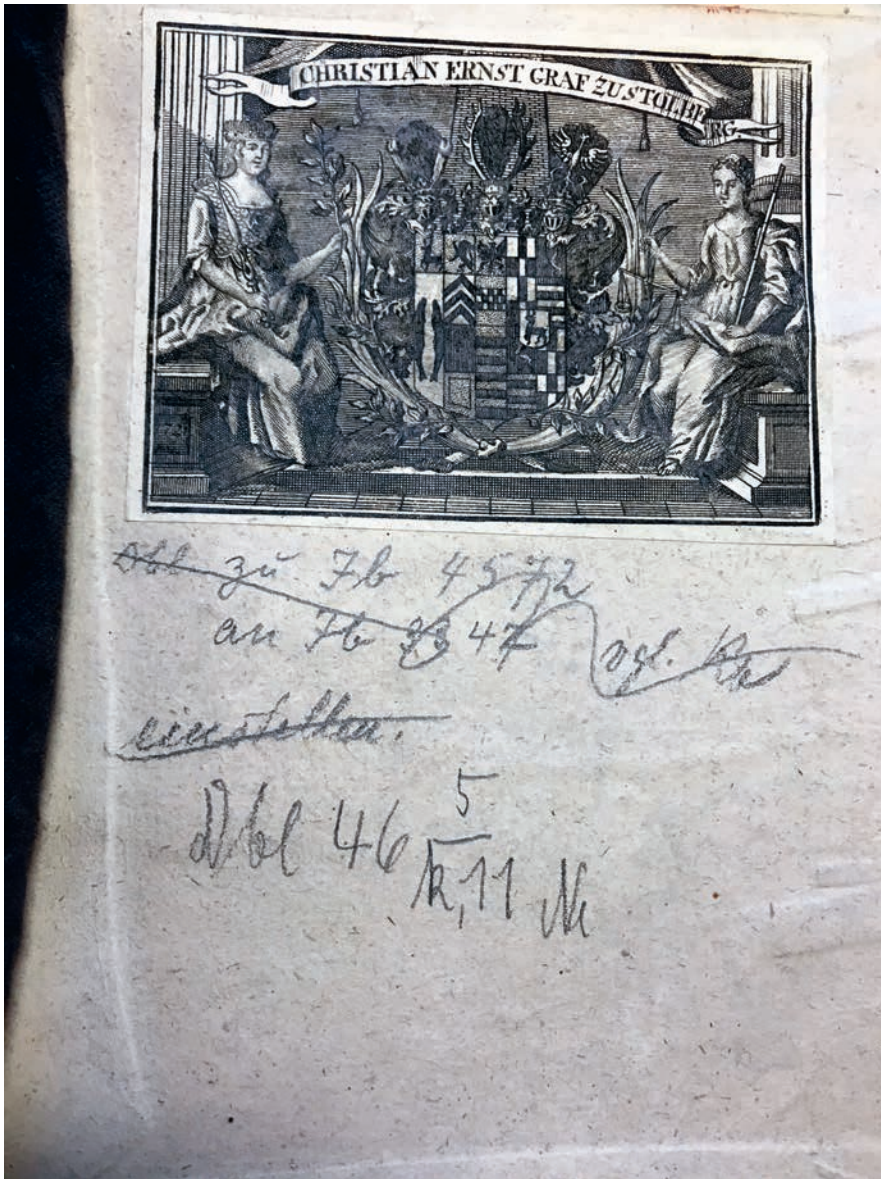 CHRISTIAN ERNST GRAF ZU STOLBERG
zu Jb 4572
an Jb 3347 vgl.
einstellen.
Dbl 46 5
k, 11